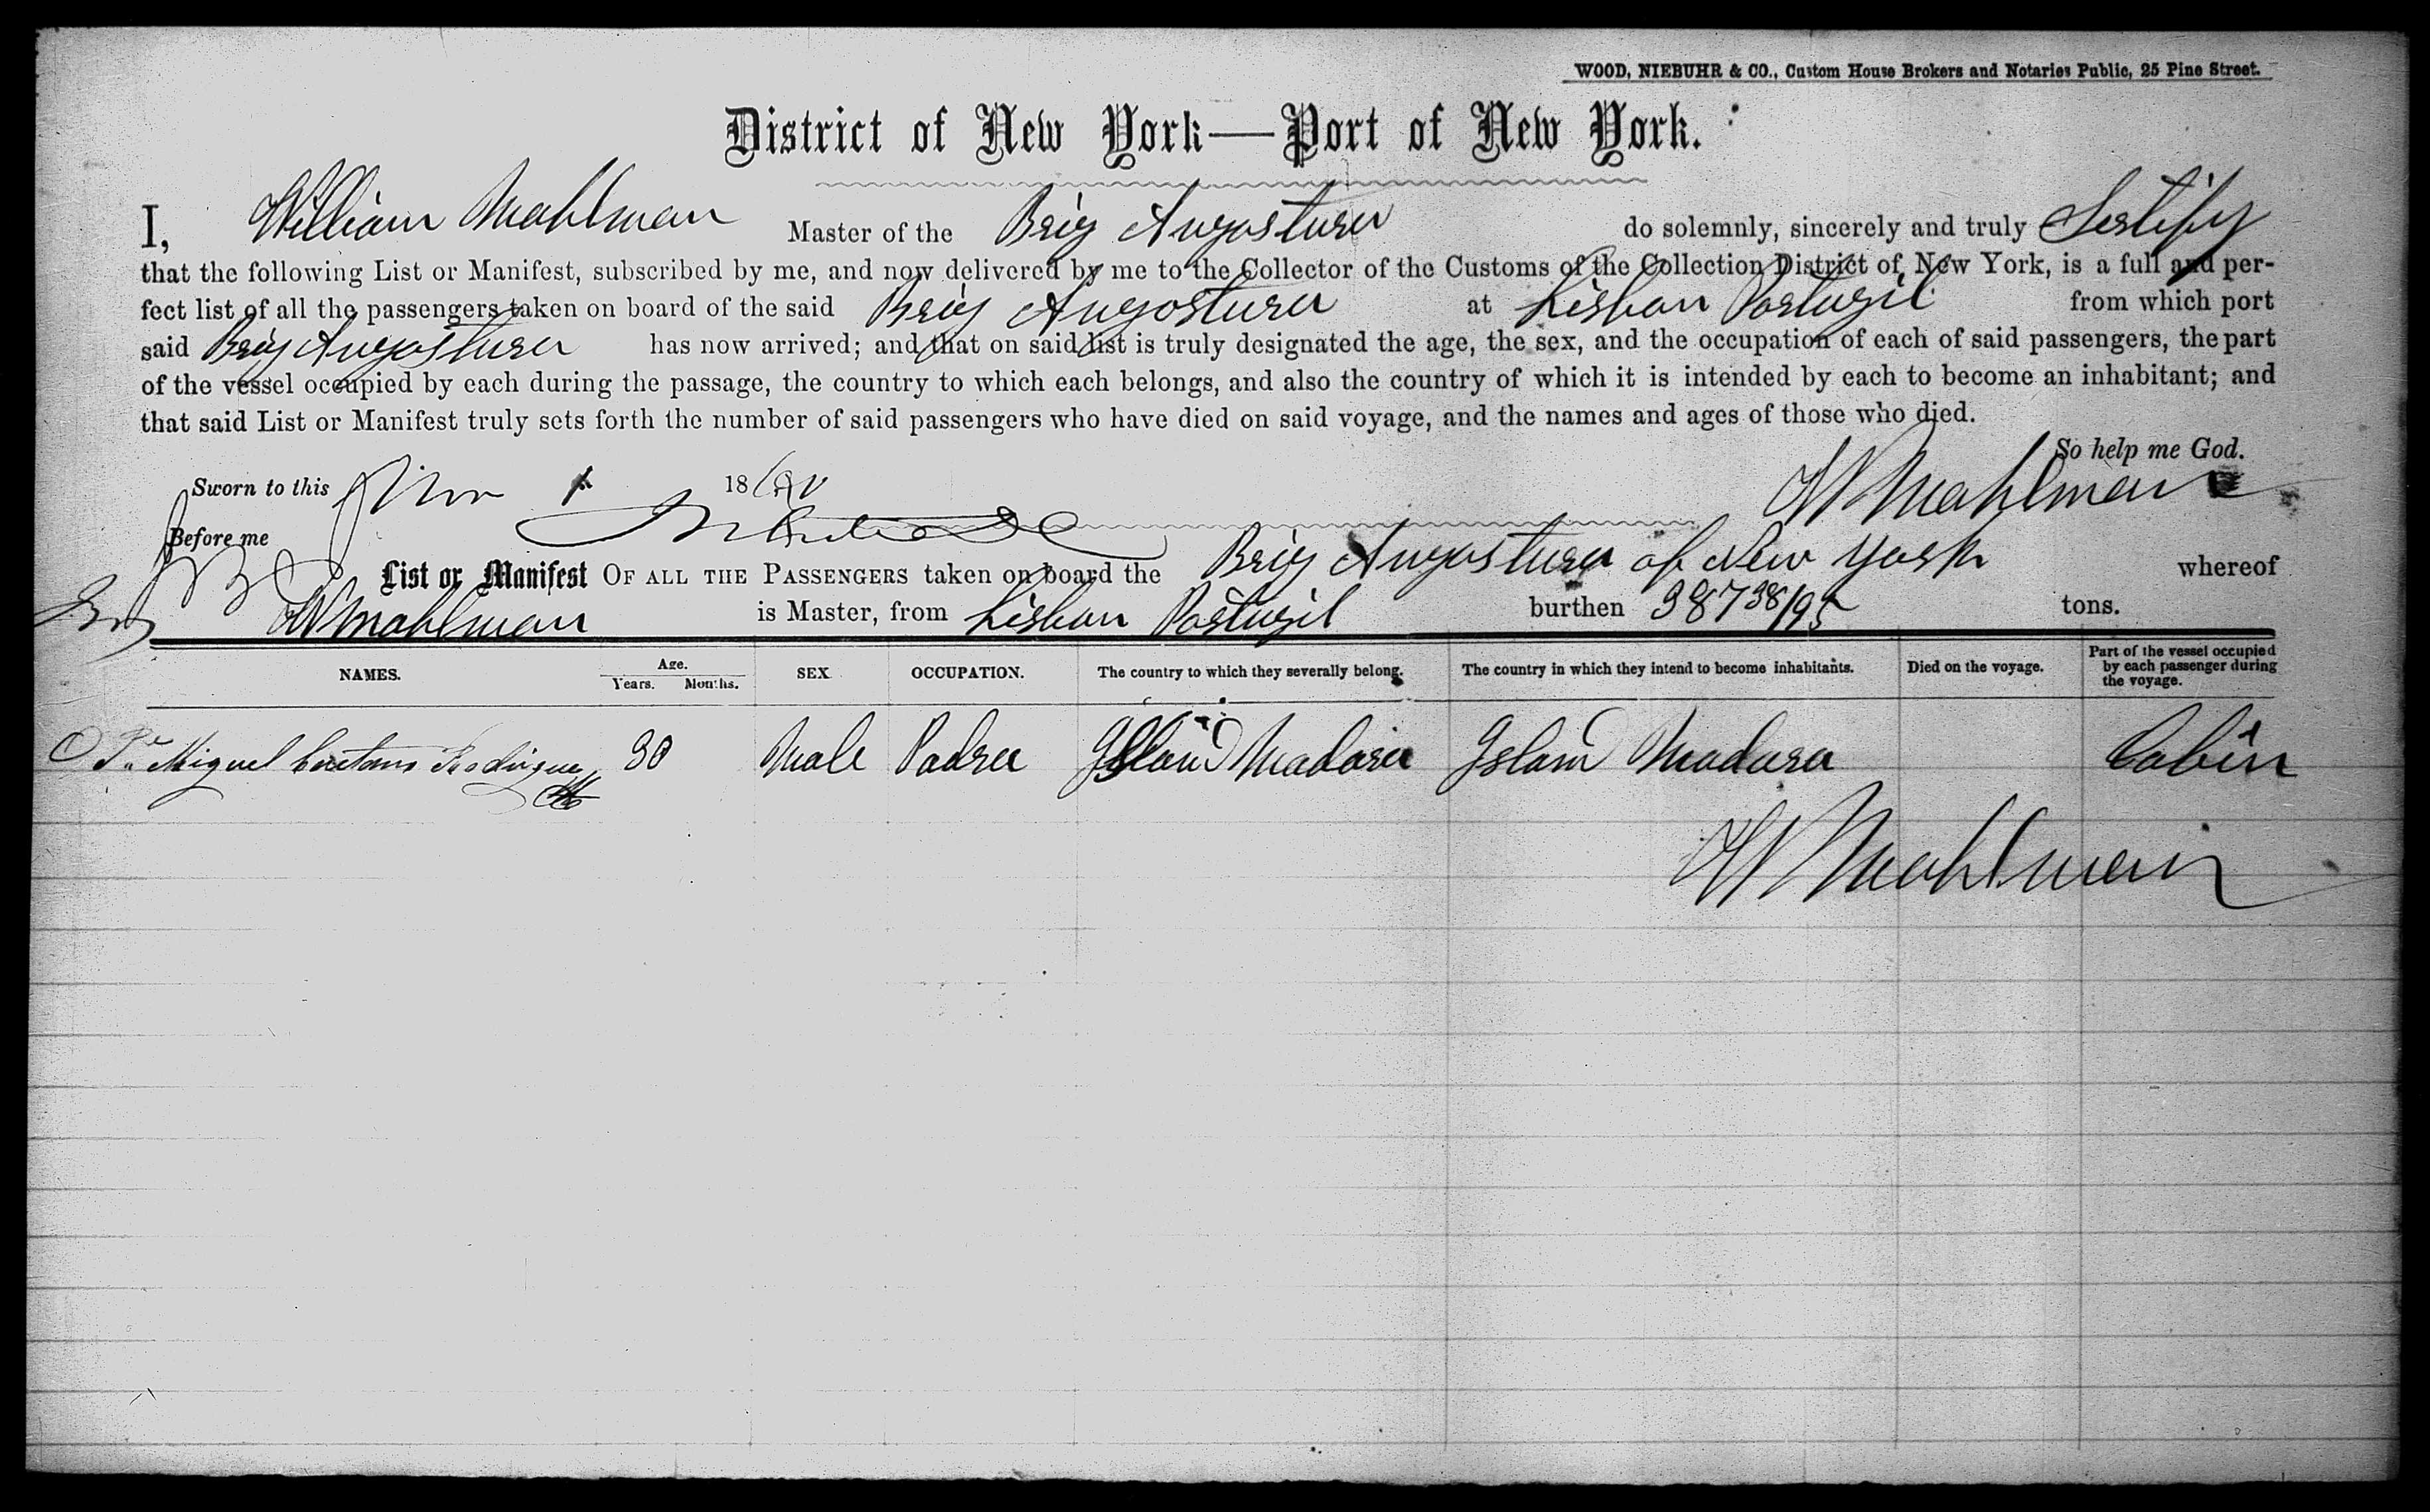 WOOD, NIEBUHR & CO., Custom House Brokers and Notaries Public, 25 Pine Street.
District of New York—Port of New York.
I, William Mahlman Master of the Brig Angostura do solemnly, sincerely and truly Sertify
that the following List or Manifest, subscribed by me, and now delivered by me to the Collector of the Customs of the Collection District of New York, is a full and per-
fect list of all the passengers taken on board of the said Brig Angostura at Lisbon Portugil from which port
said Brig Angostura has now arrived; and that on said list is truly designated the age, the sex, and the occupation of each of said passengers, the part
of the vessel occupied by each during the passage, the country to which each belongs, and also the country of which it is intended by each to become an inhabitant; and
that said List or Manifest truly sets forth the number of said passengers who have died on said voyage, and the names and ages of those who died.
So help me God.
Sworn to this Nov 18 W Mahlman
Before me
List or Manifest OF ALL THE PASSENGERS taken on board the Brig Angostura of New York whereof
W Mahlman is Master, from Lisbon Portugil burthen 387 38/95 tons.
NAMES. Age. Years. Months. SEX. OCCUPATION. The country to which they severally belong. The country in which they intend to become inhabitants. Died on the voyage. Part of the vessel occupied by each passenger during the voyage.
Miguel Caetano 30 Male Padra Island Madara Island Madara Cabin
W Mahlman